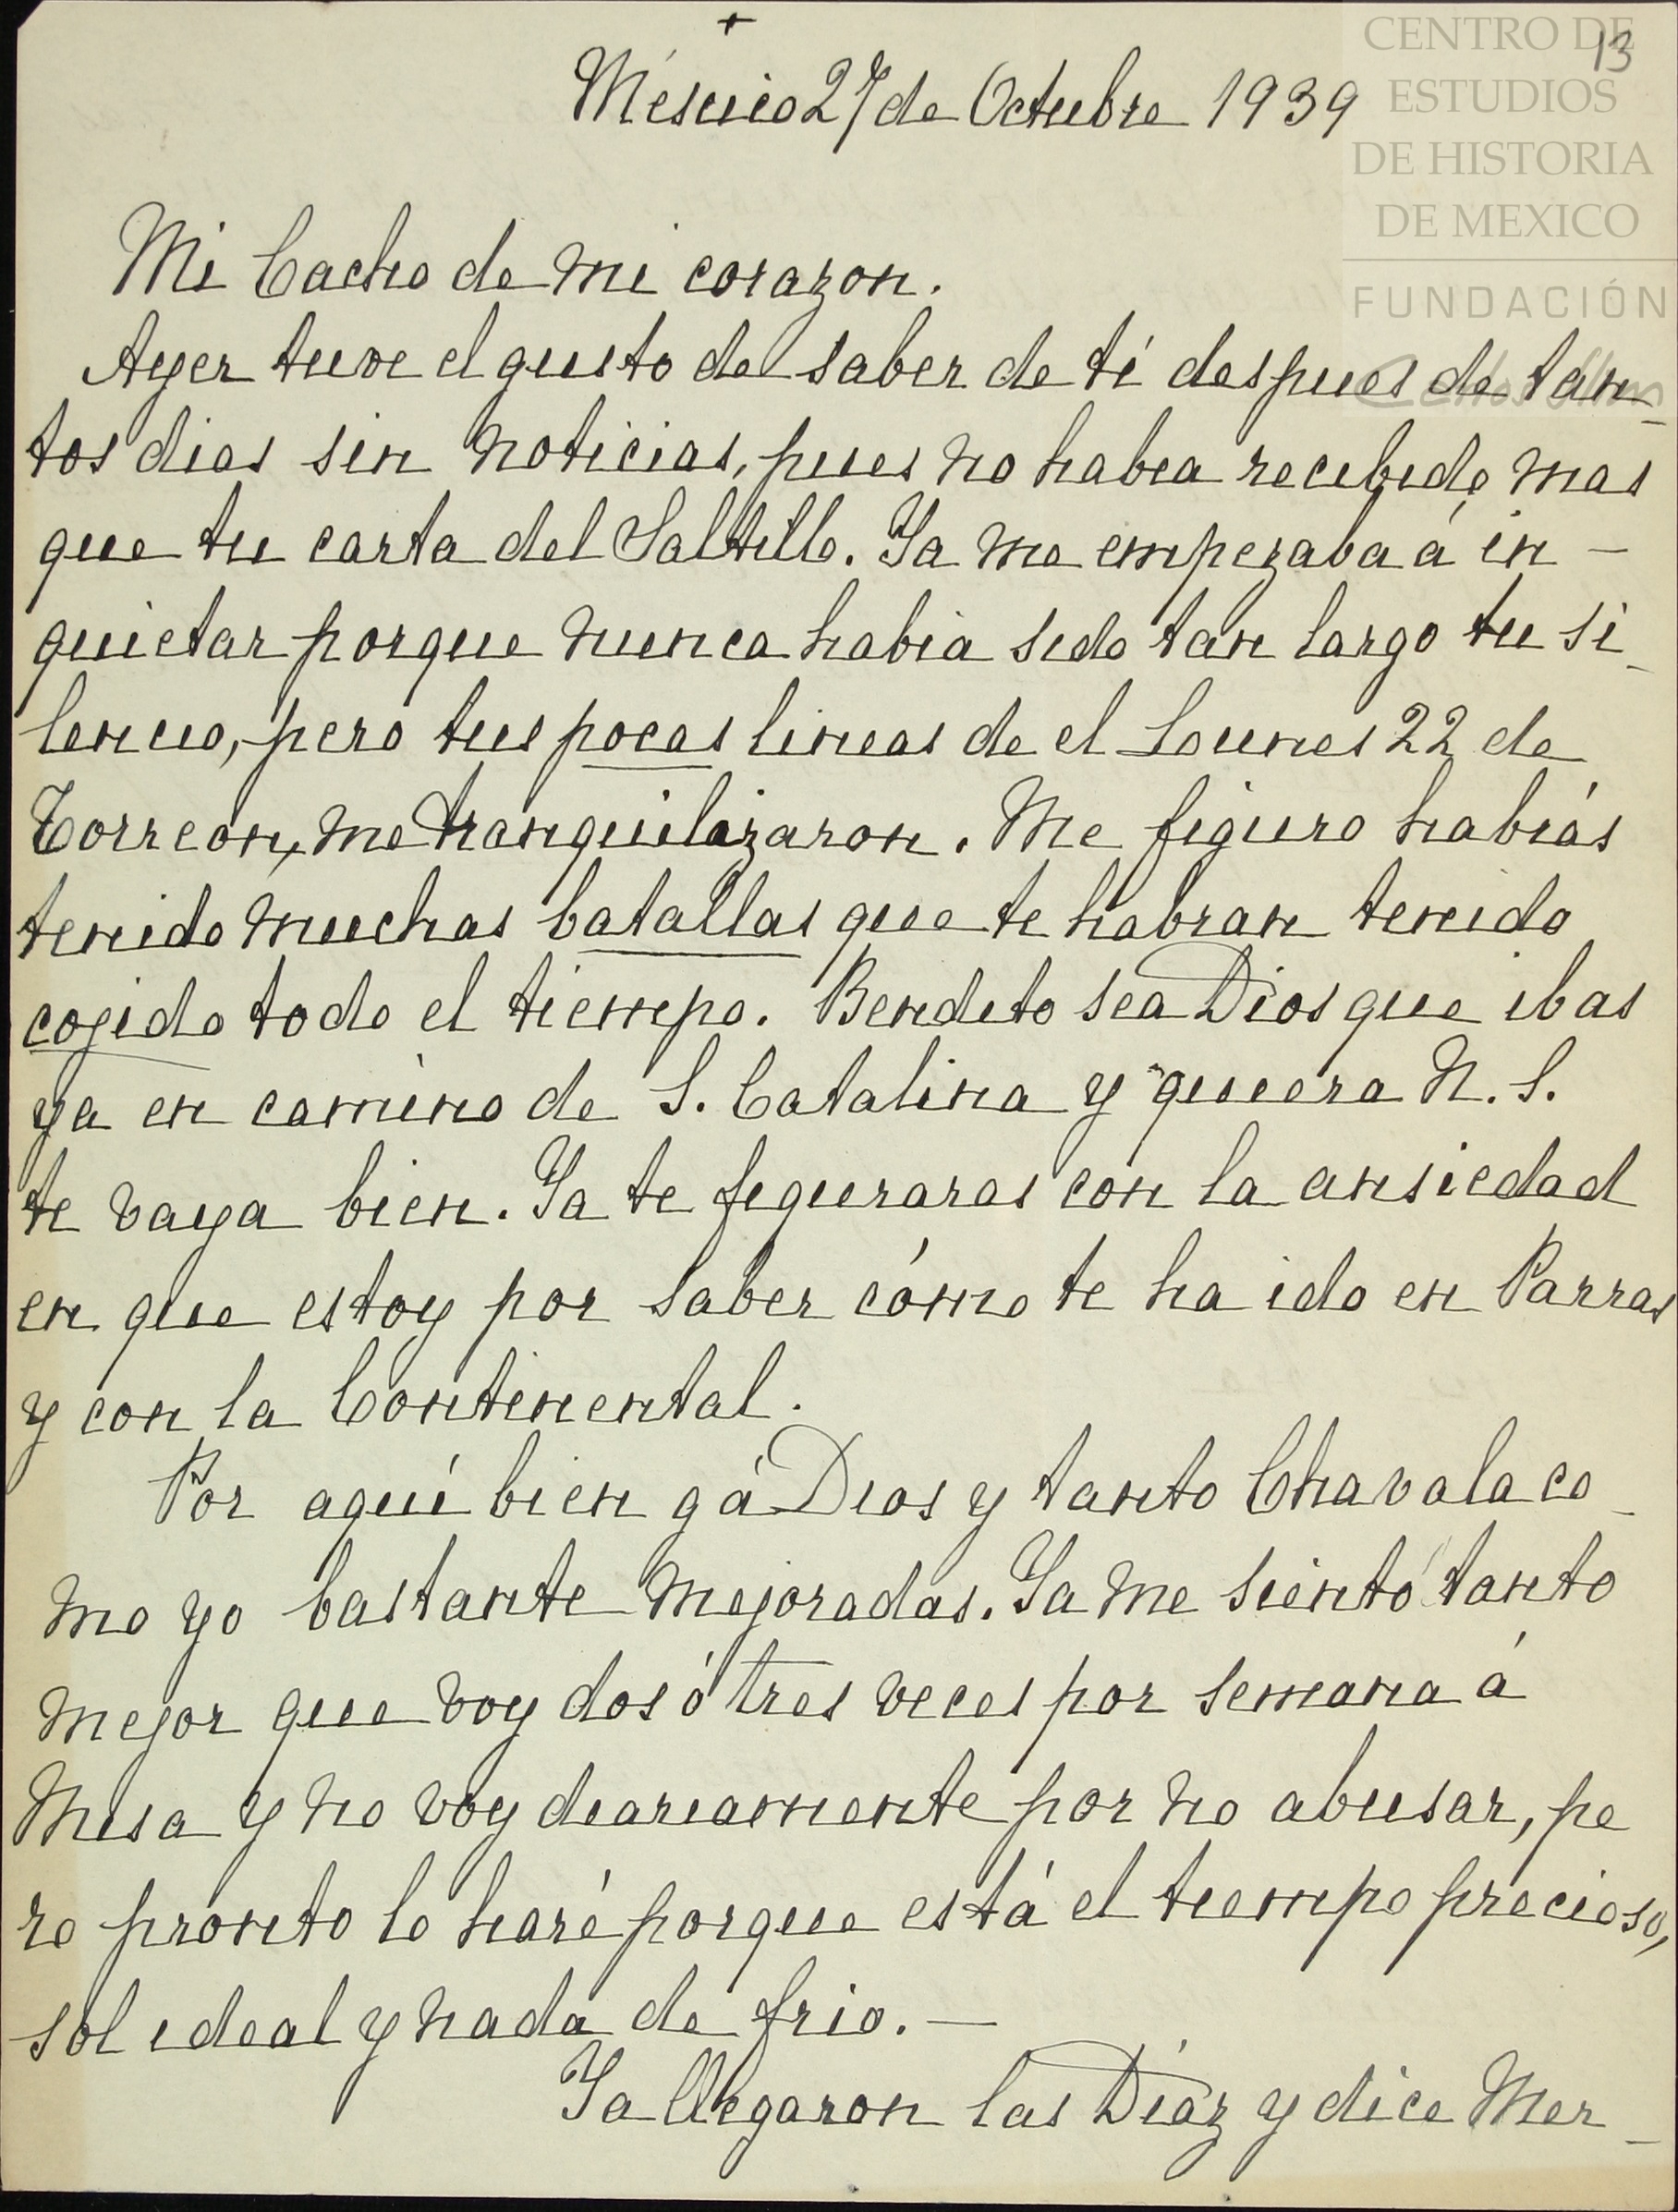 +
13
CENTRO DE
ESTUDIOS
DE HISTORIA
DE MEXICO
FUNDACIÓN
México 27 de Octubre 1939
Mi Cacho de mi corazon.
Ayer tuve el gusto de saber de tí despues de tan-
tos dias sin noticias, pues no habia recibido mas
que tu carta del Saltillo. Ya me empezaba á in-
quietar porque nunca habia sido tan largo tu si-
lencio, pero tus pocas lineas de el Lunes 22 de
Torreón, me tranquilizaron. Me figuro habrás
tenido muchas batallas que te habran tenido
cogido todo el tiempo. Bendito sea Dios que ibas
ya en camino de S. Catalina y quiera N. S.
te vaya bien. Ya te figuraras con la ansiedad
en que estoy por saber cómo te ha ido en Parras
y con la Continental.
Por aquí bien g á Dios y tanto Chavala co-
mo yo bastante mejoradas. Ya me siento tanto
mejor que voy dos ó tres veces por semana á
Misa y no voy diariamente por no abusar, pe
ro pronto lo haré porque está el tiempo precioso,
sol ideal y nada de frio. —
Ya llegaron las Díaz y dice Mer-